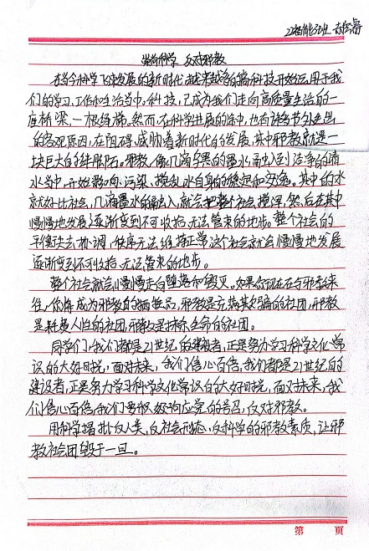 崇尚科学 反对邪教
在当今科学飞速发展的新时代,越来越多的高科技开始运用于我
们的学习、工作和生活当中,科技,已成为我们走向高质量生活的一
座桥梁、一根纽带,然而,在科学进展的途中,也有许多
的客观原因,在阻碍、威胁着新时代的发展,其中邪教就是一
块巨大的绊脚石。邪教,像几滴的墨水,融入到洁净的清
水当中,开始影响、污染、搅乱水自身的稳定和安逸。其中的水
就如此社会,几滴墨水的融入,就会把整个社会搅浑,然后在其中
慢慢地发展,逐渐变到不可收拾、无法管束的地步。整个社会的
平衡失去协调,秩序无法维持正常,这个社会就会慢慢地发展
逐渐变到不可收拾、无法管束的地步。
整个社会就会慢慢走向堕落和毁灭。如果你现在与邪教来
往,你将成为邪教的牺牲品,邪教是充满欺骗的社团,邪教
是耗费人性的社团,邪教是抹杀生命的社团。
同学们,我们都是21世纪的建设者,正是努力学习科学文化常
识的大好时光,面对未来,我们信心百倍,我们都是21世纪的
建设者,正是努力学习科学文化常识的大好时光,面对未来,我
们信心百倍,我们要积极响应党的号召,反对邪教。
用科学批反人类、反社会形态、反科学的邪教素质,让邪
教社会团毁于一旦。
第 页